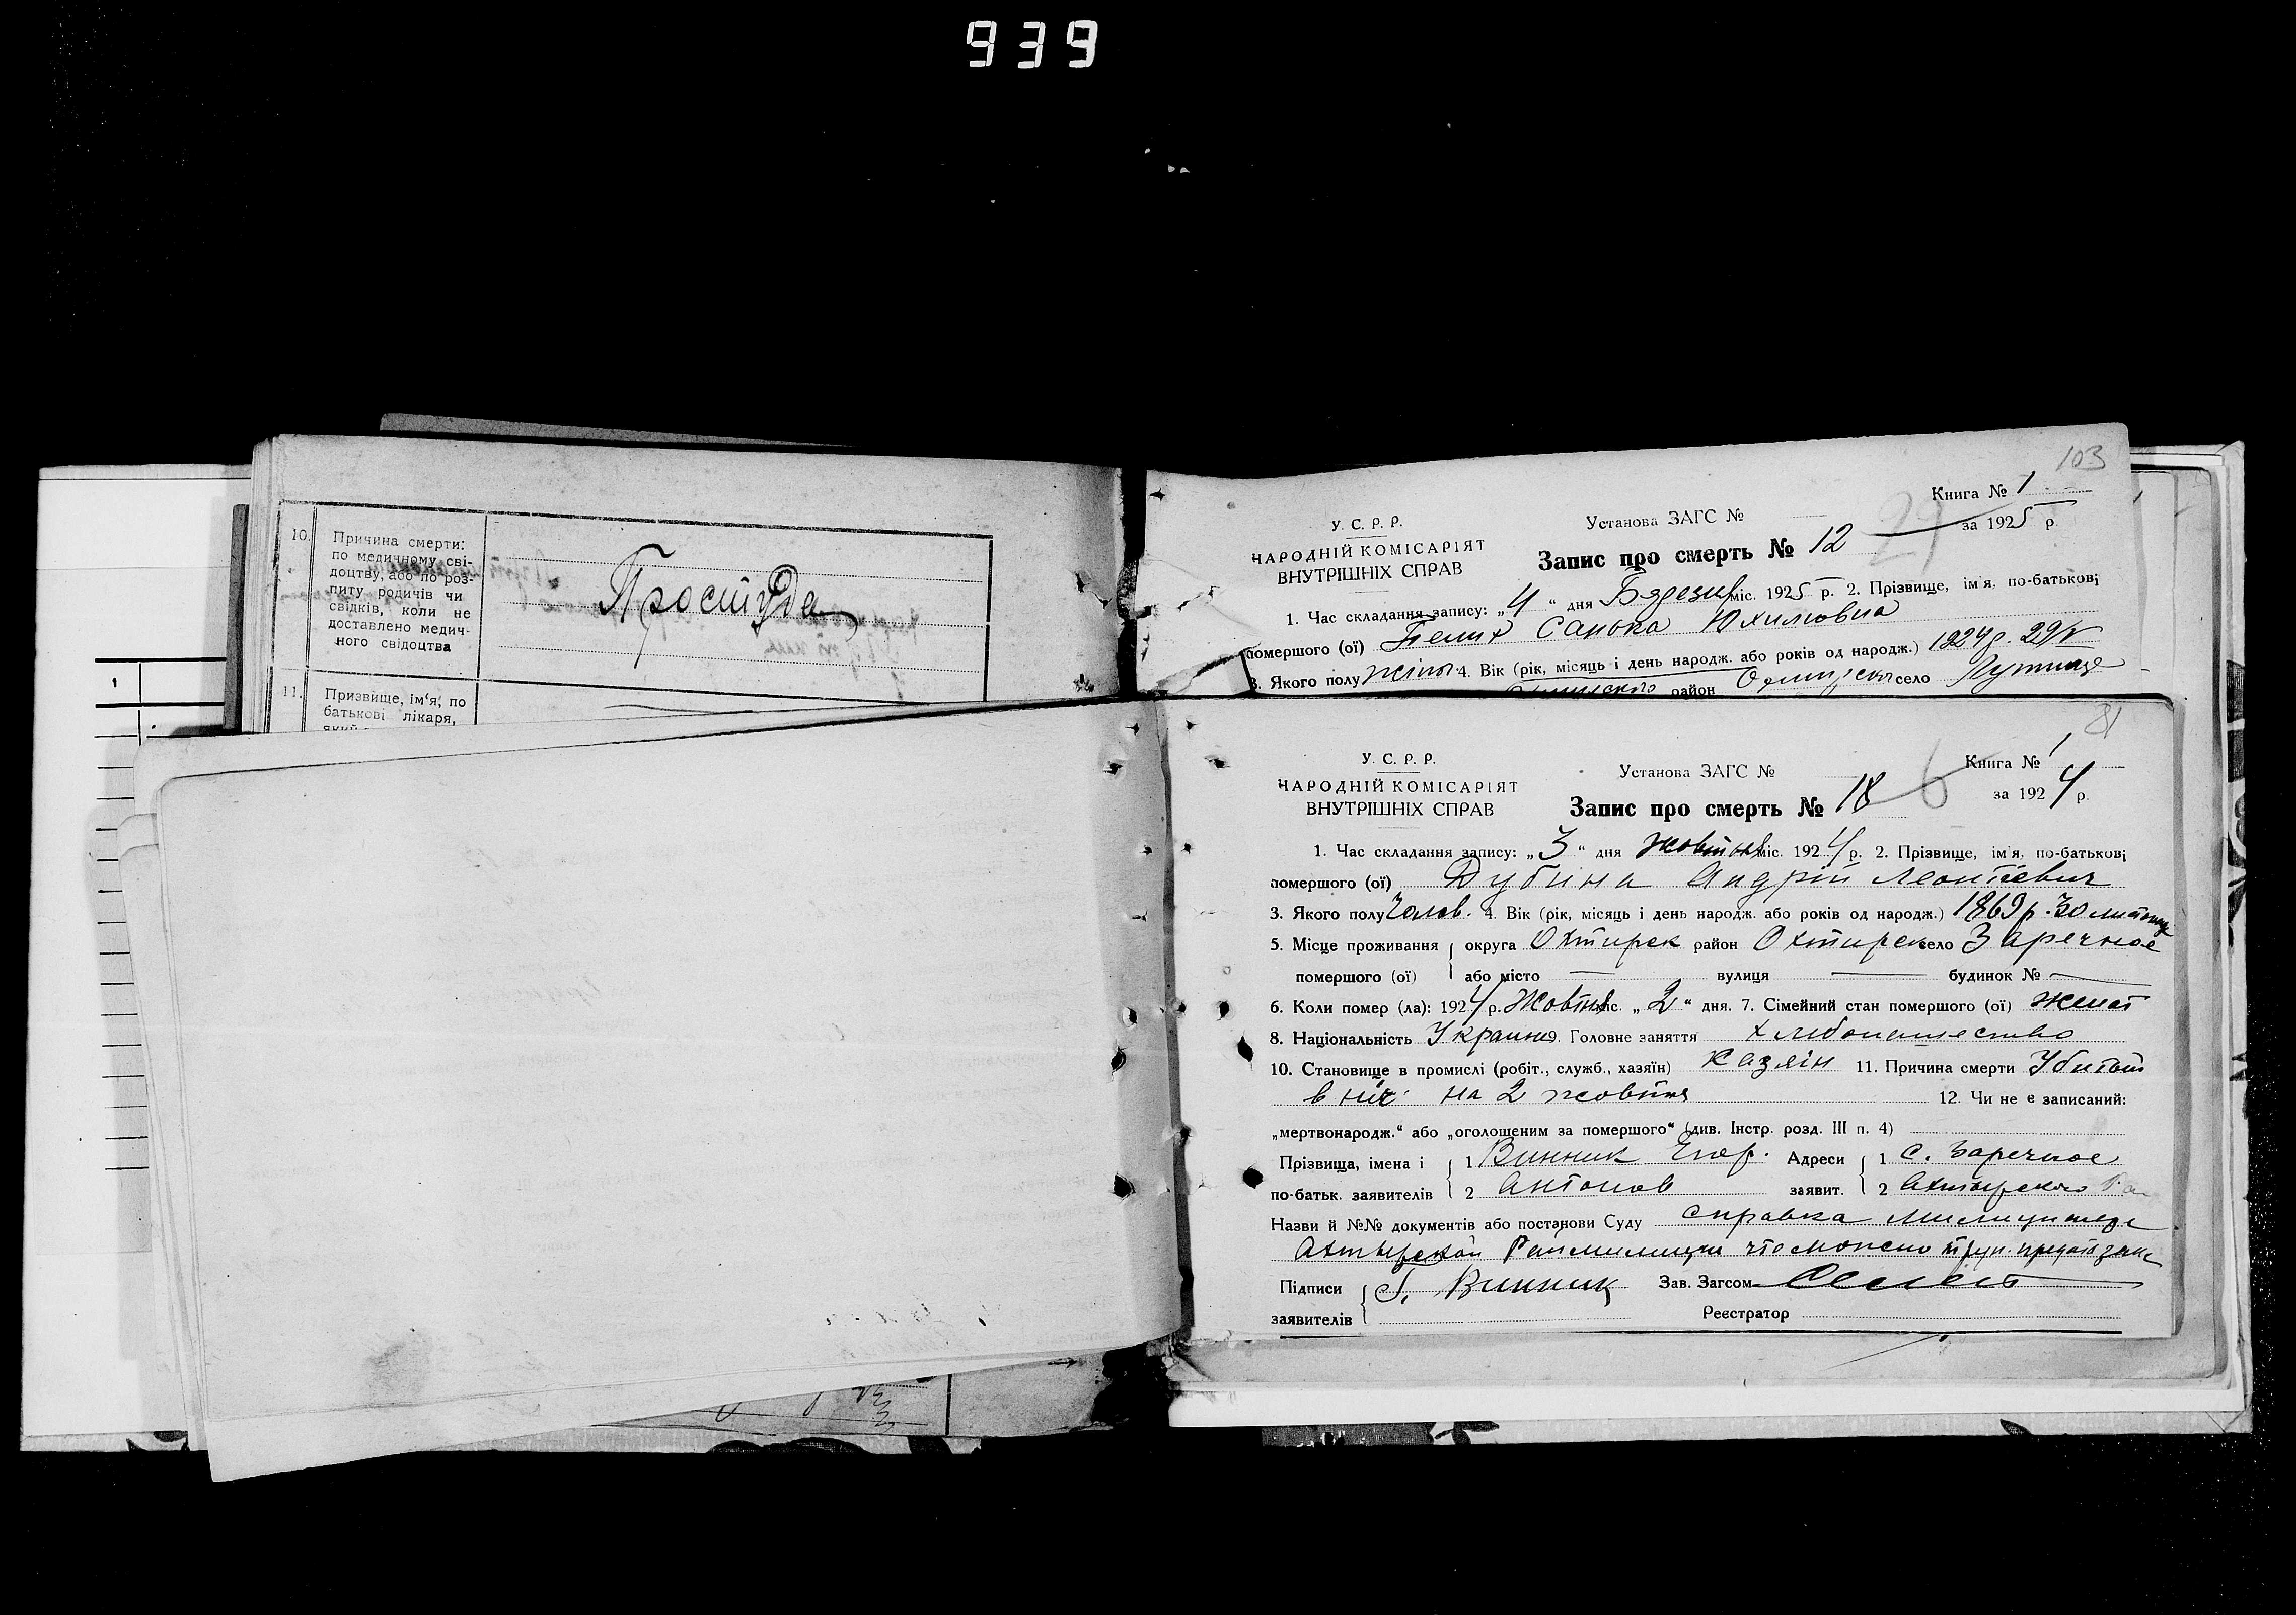 939
10.
Причина смерти:
по медичному сві-
доцтву, або по роз-
питу родичів чи
свідків, коли не
доставлено медич-
ного свідоцтва
Простуда
11.
Призвище, ім‘я, по
батькові лікаря,
який
1
103
Книга № 1
У. С. Р. Р.
Установа ЗАГС №
за 1925 р.
НАРОДНІЙ КОМІСАРІЯТ
ВНУТРІШНІХ СПРАВ
Запис про смерть № 12
29
1. Час складання запису: „4“ дня Березня міс. 1925 р. 2. Прізвище, ім'я, по-батькові
помершого (ої) Санька Юхимовна
3. Якого полу жіноч 4. Вік (рік, місяць і день народж. або років од народж.) 1924 р. 29/V
район село
81
У. С. Р. Р.
Установа ЗАГС №
Книга № 1
НАРОДНІЙ КОМІСАРІЯТ
ВНУТРІШНІХ СПРАВ
Запис про смерть № 18
6
за 1924 р.
1. Час складання запису: „3“ дня жовтня міс. 1924 р. 2. Прізвище, ім'я, по-батькові
помершого (ої) Дубина Андрій Леонтіевич
3. Якого полу Чолов. 4. Вік (рік, місяць і день народж. або років од народж.) 1869 р. 30
5. Місце проживання округа Охтирск район Охтирск село Заречное
помершого (ої) або місто — вулиця — будинок № —
6. Коли помер (ла): 1924 р. Жовтня міс. „2“ дня. 7. Сімейний стан помершого (ої) женат
8. Національність Украин 9. Головне заняття хлібопашество
10. Становище в промислі (робіт., служб., хазяїн) Хазяін 11. Причина смерти Убитий
в ніч на 2 жовтня 12. Чи не є записаний:
„мертвонародж.“ або „оголошеним за помершого“ (див. Інстр. розд. III п. 4)
Прізвища, імена і 1 Винник Егор. Адреси 1 с. Заречное
по-батьк. заявителів 2 Антонов заявит. 2 Ахтырского
Назви й №№ документів або постанови Суду справка
Ахтырской Раймилиции что можно труп предать
Підписи Г. Винник Зав. Загсом
заявителів Реєстратор